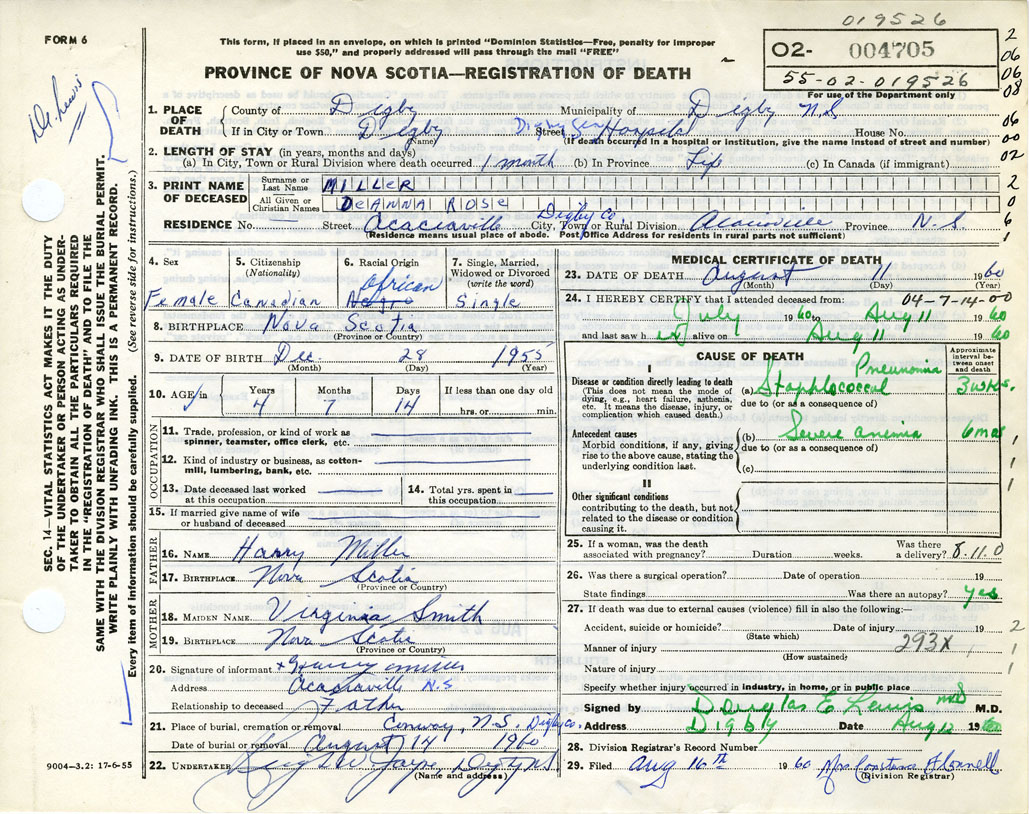 019526
FORM 6
This form, if placed in an envelope, on which is printed "Dominion Statistics—Free, penalty for improper
use $50," and properly addressed will pass through the mail "FREE"
O2- 004705
55-02-019526
For use of the Department only
PROVINCE OF NOVA SCOTIA—REGISTRATION OF DEATH
2
06
06
08
06
00
02
2
0
6
1
Dr. Lewis
1. PLACE OF DEATH { County of Digby Municipality of Digby N.S
If in City or Town Digby (Name) Street Digby Gen Hospital House No.
(If death occurred in a hospital or institution, give the name instead of street and number)
2. LENGTH OF STAY (in years, months and days)
(a) In City, Town or Rural Division where death occurred 1 month (b) In Province Life (c) In Canada (if immigrant)
3. PRINT NAME OF DECEASED { Surname or Last Name MILLER
All Given or Christian Names DeANNA ROSE
RESIDENCE No. Street Acaciaville City, Town or Rural Division Digby Co. Province N.S.
(Residence means usual place of abode. Post Office Address for residents in rural parts not sufficient)
SEC. 14—VITAL STATISTICS ACT MAKES IT THE DUTY
OF THE UNDERTAKER OR PERSON ACTING AS UNDER-
TAKER TO OBTAIN ALL THE PARTICULARS REQUIRED
IN THE "REGISTRATION OF DEATH" AND TO FILE THE
SAME WITH THE DIVISION REGISTRAR WHO SHALL ISSUE THE BURIAL PERMIT.
WRITE PLAINLY WITH UNFADING INK. THIS IS A PERMANENT RECORD.
Every item of information should be carefully supplied. (See reverse side for instructions.)
4. Sex
Female
5. Citizenship
(Nationality)
Canadian
6. Racial Origin
African
Negro
7. Single, Married,
Widowed or Divorced
(write the word)
Single
8. BIRTHPLACE Nova Scotia
(Province or Country)
9. DATE OF BIRTH Dec. 28 1955
(Month) (Day) (Year)
10. AGE Years Months Days If less than one day old
4 7 14 hrs. or min.
OCCUPATION
11. Trade, profession, or kind of work as
spinner, teamster, office clerk, etc.
12. Kind of industry or business, as cotton-
mill, lumbering, bank, etc.
13. Date deceased last worked
at this occupation
14. Total yrs. spent in
this occupation
15. If married give name of wife
or husband of deceased
FATHER
16. NAME Harry Miller
17. BIRTHPLACE Nova Scotia
(Province or Country)
MOTHER
18. MAIDEN NAME Virginia Smith
19. BIRTHPLACE Nova Scotia
(Province or Country)
20. Signature of informant x Harry Miller
Address Acaciaville N.S
Relationship to deceased Father
21. Place of burial, cremation or removal Conway, N.S. Digby Co.
Date of burial or removal August 14 1960
22. UNDERTAKER Digby NS
(Name and address)
9004-3.2: 17-6-55
MEDICAL CERTIFICATE OF DEATH
23. DATE OF DEATH August 11 1960
(Month) (Day)
24. I HEREBY CERTIFY that I attended deceased from: 04-7-14-00
July 1960 to Aug 11 1960
and last saw h er alive on Aug 11 1960
CAUSE OF DEATH
Approximate
interval be-
tween onset
and death
I
Disease or condition directly leading to death
(This does not mean the mode of
dying, e.g., heart failure, asthenia,
etc. It means the disease, injury, or
complication which caused death.)
(a) Staphlococcal Pneumonia 3 wks.
due to (or as a consequence of)
Antecedent causes
Morbid conditions, if any, giving
rise to the above cause, stating the
underlying condition last.
(b) Severe anemia 6 mos
due to (or as a consequence of)
(c)
1
1
1
II
Other significant conditions
contributing to the death, but not
related to the disease or condition
causing it.
25. If a woman, was the death
associated with pregnancy? Duration weeks. Was there
a delivery? 8.11.0
26. Was there a surgical operation? Date of operation 19
State findings Was there an autopsy? yes
27. If death was due to external causes (violence) fill in also the following:—
Accident, suicide or homicide? Date of injury 19
(State which)
Manner of injury 293X
(How sustained)
Nature of injury
Specify whether injury occurred in industry, in home, or in public place
2
1
1
Signed by Douglas E Lewis MD M.D.
Address Digby Date Aug 12 1960
28. Division Registrar's Record Number
29. Filed Aug 16th 1960 Mrs
(Division Registrar)